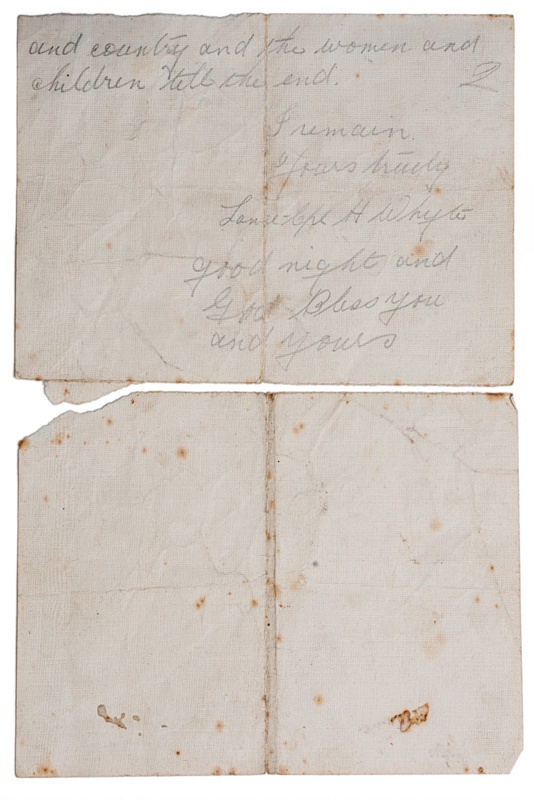 and country and the women and
children till the end. 2
I remain
Yours truely
Lance-Cpl H Whyte
good night and
God Bless you
and yours